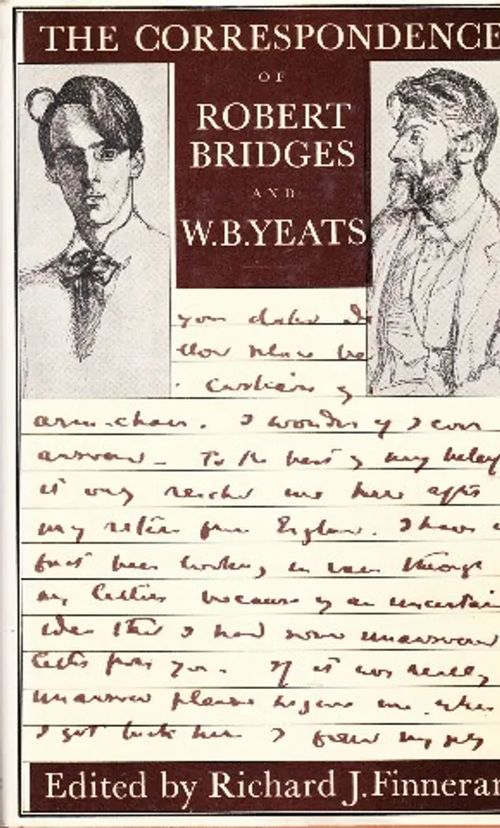 THE CORRESPONDENCE
OF
ROBERT
BRIDGES
AND
W.B.YEATS
your
arm-chair. I wonder if I ever
To the best of my belief
it only reached me here after
my return from England. I have
fact been looking in vain through
my letters because of an uncertain
idea that I had some unanswered
letter from you. If it was really
unanswered please forgive me. when
I got back here I found my
Edited by Richard J. Finneran